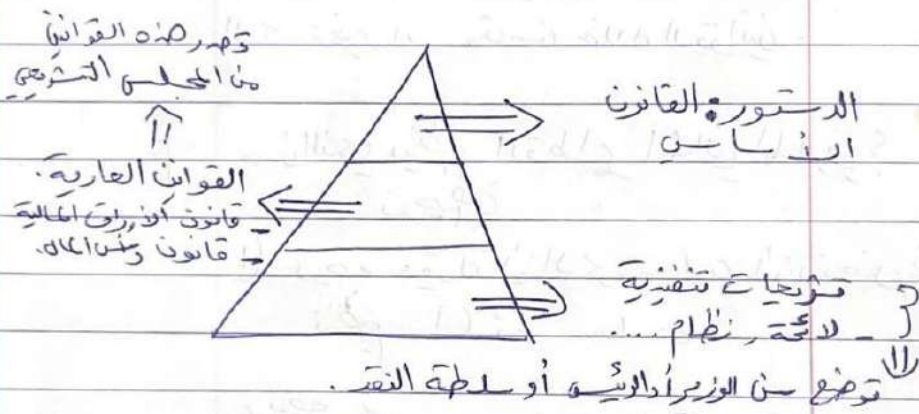 تصدر هذه القوانين
من المجلس التشريعي
الدستور: القانون
الأساسي
القوانين العادية.
- قانون الأوراق المالية
- قانون رأس المال.
تشريعات تنفيذية
- لائحة, نظام....
توضع من الوزير أو الرئيس أو سلطة النقد.